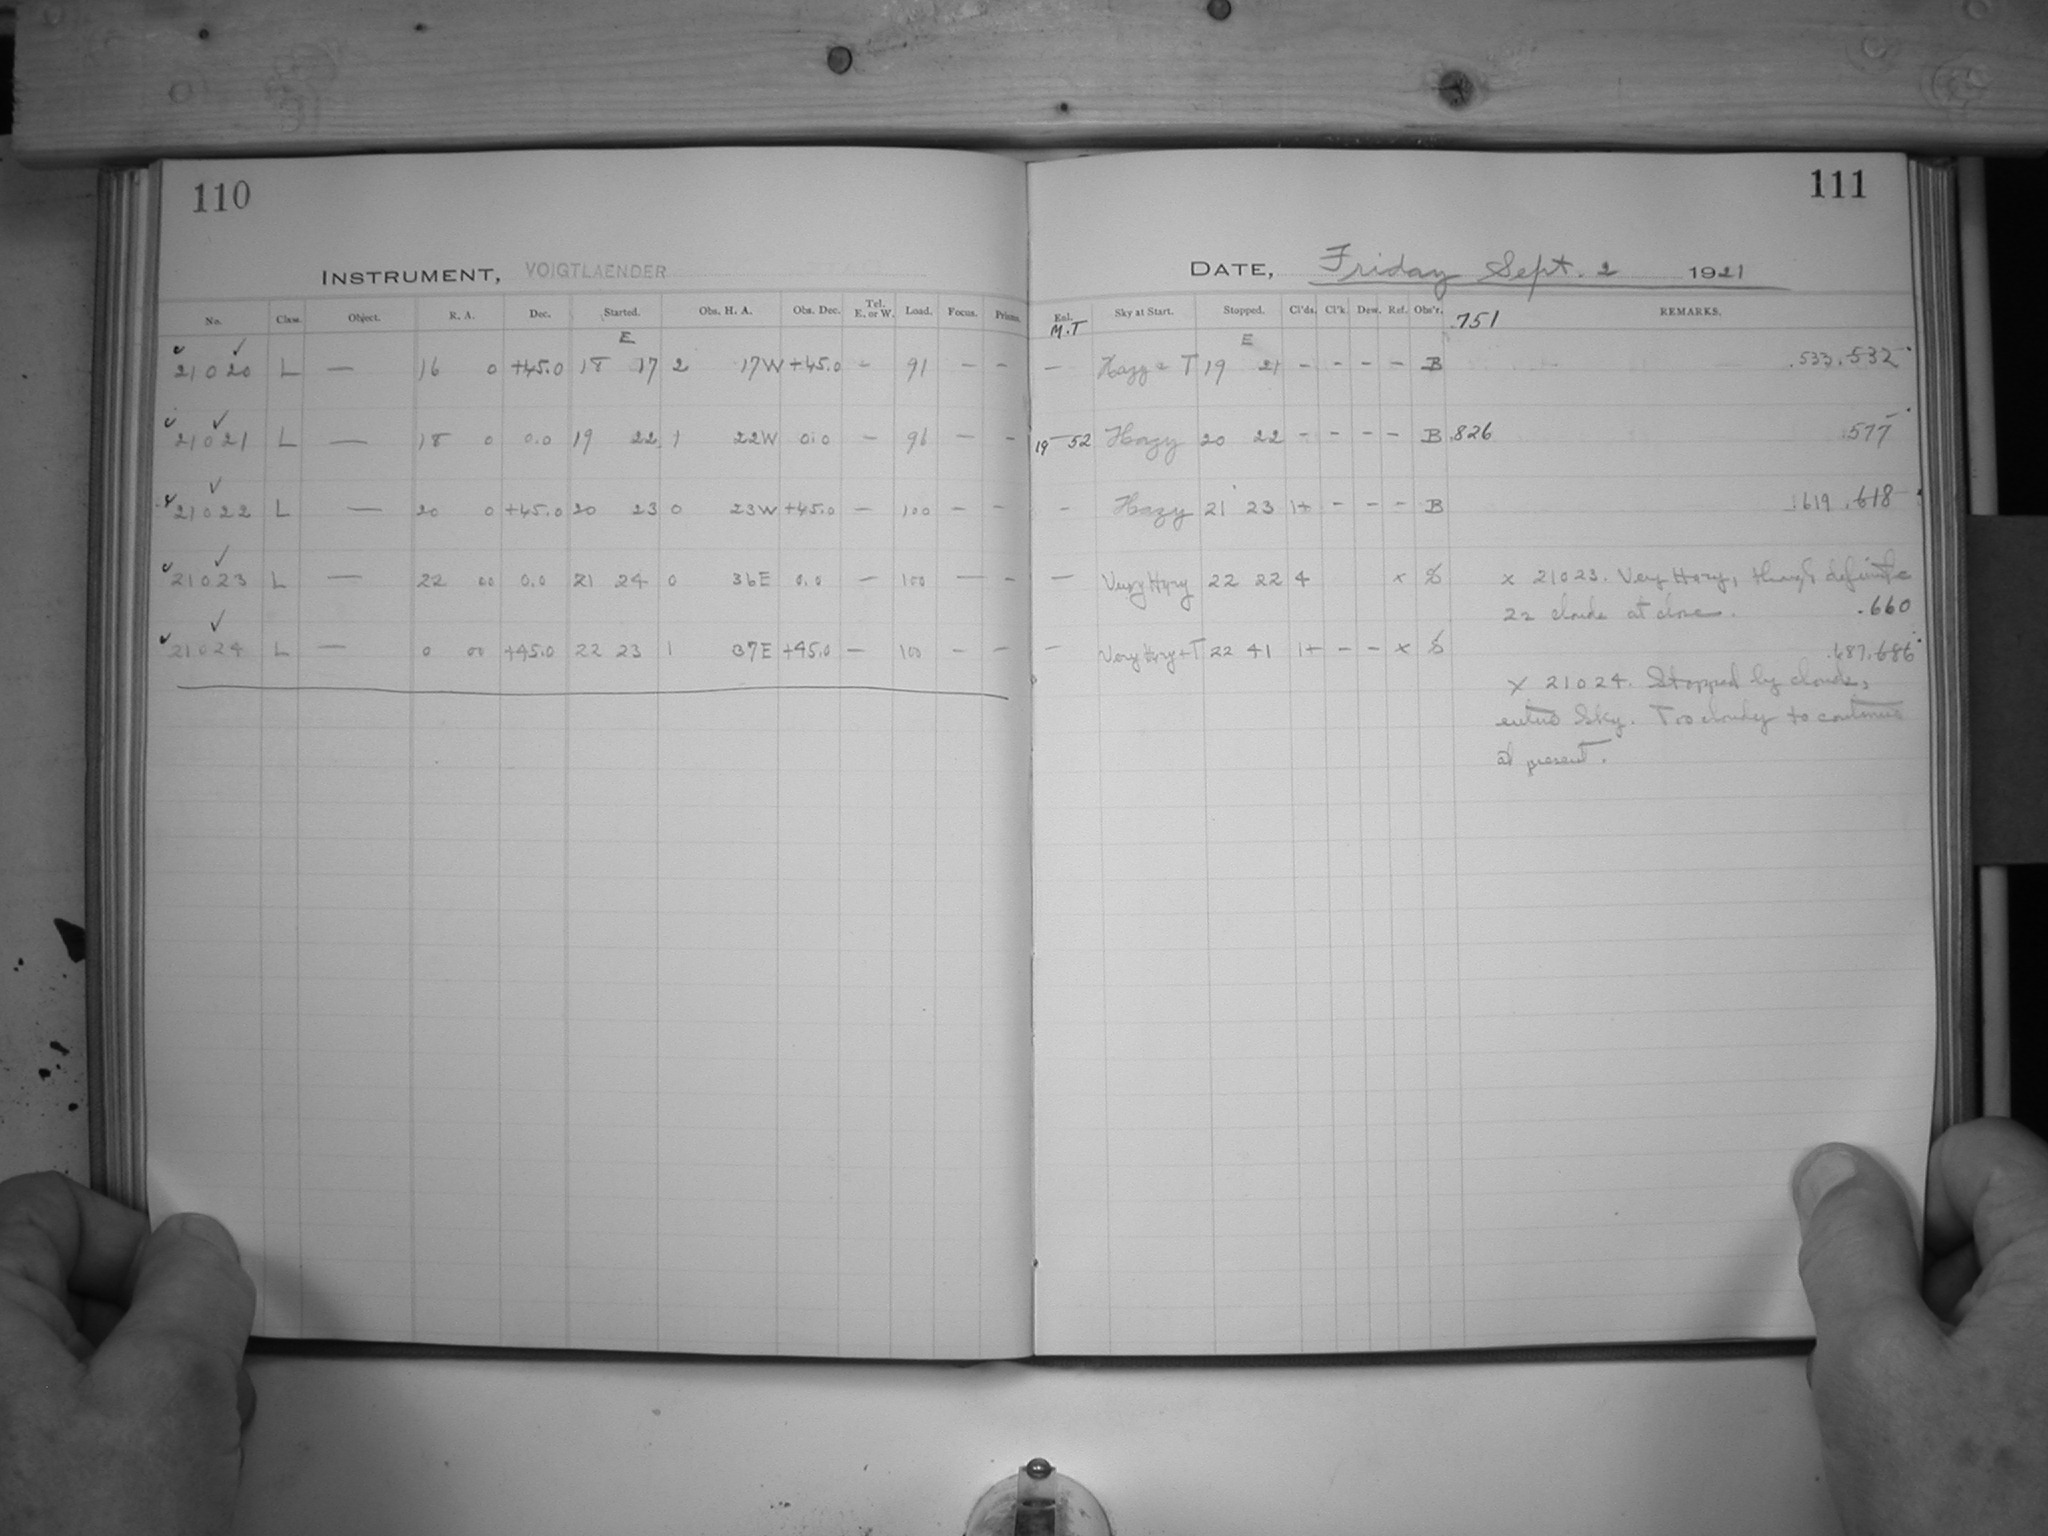 110
INSTRUMENT, VOIGTLAENDER
No. Class. Object. R. A. Dec. Started. Obs. H. A. Obs. Dec. Tel. E. or W. Load. Focus. Prisms.
E
21020 L — 16 0 +45.0 18 17 2 17W +45.0 - 91 — -
21021 L — 18 0 0.0 19 22 1 22W 0.0 - 96 — -
21022 L — 20 0 +45.0 20 23 0 23W +45.0 — 100 - -
21023 L — 22 00 0.0 21 24 0 36E 0.0 — 100 — -
21024 L — 0 00 +45.0 22 23 1 37E +45.0 — 100 - -
111
DATE, Friday Sept. 2 1921
Sky at Start. Stopped. Cl'ds. Cl'k. Dew. Ref. Obs'r. .751 REMARKS.
M.T
E
— T 19 21 - - - - B .533 .532
19 52 Hazy 20 22 - - - - B .826 .577
- Hazy 21 23 1+ - - - B .619 .618
— Very Hazy 22 22 4 x x 21023. Very Hazy, though definite
22 clouds at close. .660
— Very Hazy + T 22 41 1+ - - x .687 .686
x 21024. Stopped by clouds,
entire Sky. Too cloudy to continue
at present.